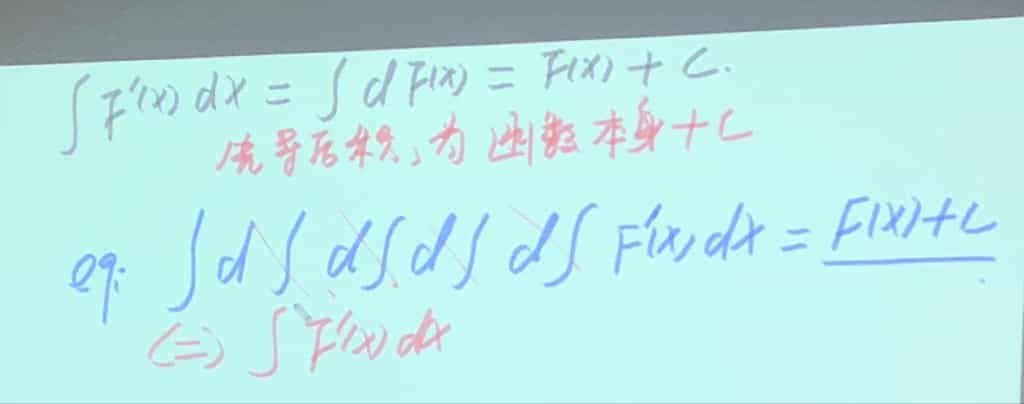 ∫ F'(x) dx = ∫ d F(x) = F(x) + C.
先导后积,为函数本身+C
eg: ∫ d ∫ d ∫ d ∫ d ∫ F'(x) dx = F(x)+C
(=) ∫ F'(x) dx